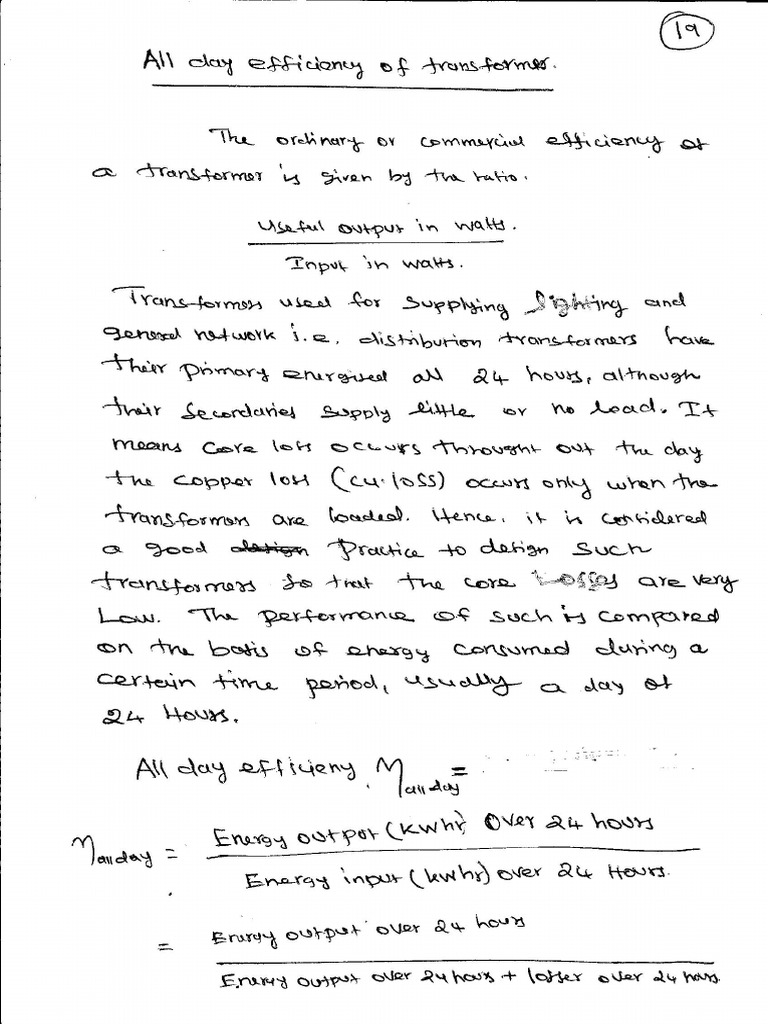 19
All day efficiency of transformer.
The ordinary or commercial efficiency of
a transformer is given by the ratio.
Useful output in watts.
Input in watts.
Transformers used for supplying lighting and
general network i.e. distribution transformers have
their primary energised all 24 hours, although
their secondaries supply little or no load. It
means core loss occurs throught out the day
the copper loss (cu.loss) occurs only when the
transformers are loaded. Hence, it is considered
a good design practice to design such
transformers so that the core losses are very
Low. The performance of such is compared
on the basis of energy consumed during a
certain time period, usually a day of
24 Hours.
All day efficieny. η all day =
η all day = Energy output (kwhr) over 24 hours
Energy input (kwhr) over 24 Hours.
= Energy output over 24 hours
Energy output over 24 hours + losser over 24 hours.